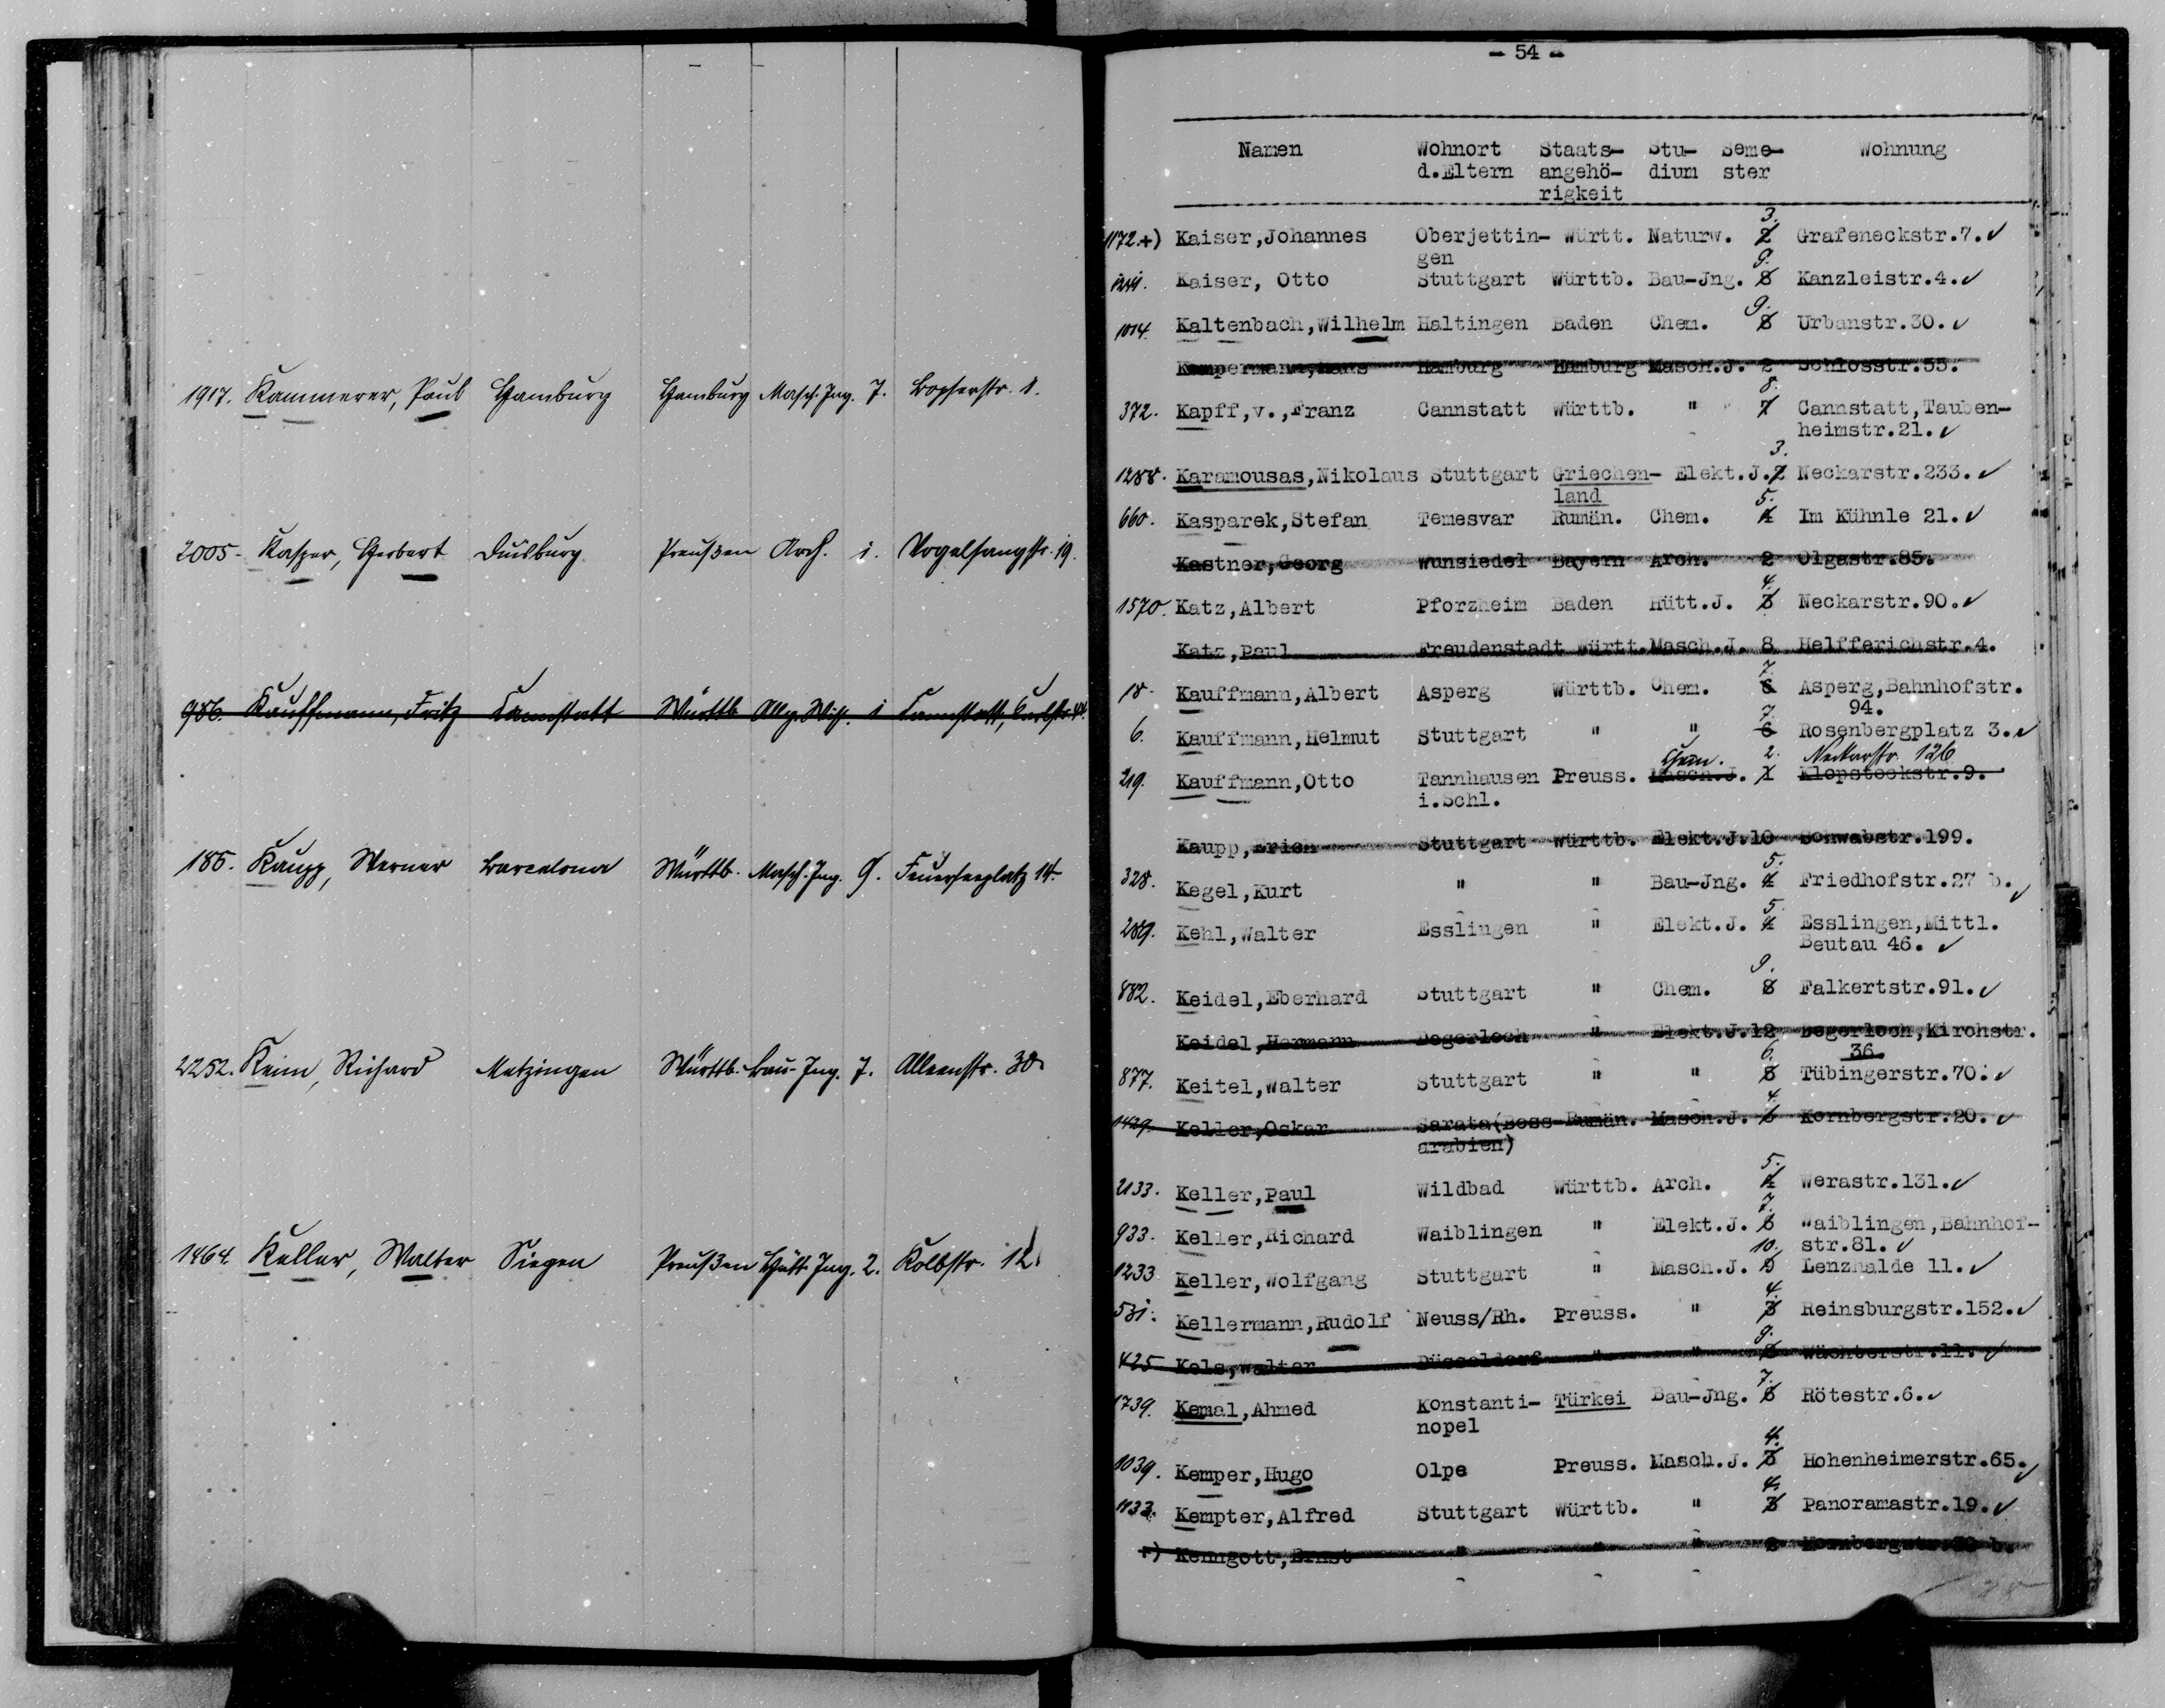 1917. Kammerer, Paul Hamburg Hamburg Masch. Ing. 7. Bopserstr. 1.
2005. Kasper, Herbert Duisburg Preußen Arch. 1. Vogelsangstr. 19.
986. Kauffmann, Fritz Cannstatt Württb. Allg. Wiss. 1 Cannstatt, Karlstr. 44.
185. Kaupp, Werner Barcelona Württb. Masch. Ing. 9. Feuerseeplatz 14.
2252. Keim, Richard Metzingen Württb. Bau-Ing. 7. Alleenstr. 30.
1464. Keller, Walter Siegen Preußen Hütt. Ing. 2. Kolbstr. 12.
- 54 -
Namen Wohnort Staats- Stu- Seme- Wohnung
d.Eltern angehö- dium ster
rigkeit
3.
1172.+) Kaiser,Johannes Oberjettin- Württ. Naturw. 2 Grafeneckstr.7. ✓
gen 9.
Kaiser, Otto Stuttgart Württb. Bau-Jng. 8 Kanzleistr.4. ✓
9.
1014. Kaltenbach,Wilhelm Haltingen Baden Chem. 8 Urbanstr.30. ✓
Kampermann,Hans Hamburg Hamburg Masch.J. 2 Schlosstr.55.
8.
372. Kapff,v.,Franz Cannstatt Württb. " 7 Cannstatt,Tauben-
heimstr.21. ✓
3.
1288. Karamousas,Nikolaus Stuttgart Griechen- Elekt.J.2 Neckarstr.233. ✓
land 5.
660. Kasparek,Stefan Temesvar Rumän. Chem. 4 Im Kühnle 21. ✓
Kastner,Georg Wunsiedel Bayern Arch. 2 Olgastr.85.
4.
1570. Katz,Albert Pforzheim Baden Hütt.J. 3 Neckarstr.90. ✓
Katz,Paul Freudenstadt Württ.Masch.J. 8 Helfferichstr.4.
7.
18. Kauffmann,Albert Asperg Württb. Chem. 6 Asperg,Bahnhofstr.
7. 94.
6. Kauffmann,Helmut Stuttgart " " 6 Rosenbergplatz 3. ✓
Chem. 2. Neckarstr. 126
219. Kauffmann,Otto Tannhausen Preuss. Masch.J. 1 Klopstockstr.9.
i.Schl.
Kaupp,Erich Stuttgart Württb. Elekt.J.10 Schwabstr.199.
5.
328. Kegel,Kurt " " Bau-Jng. 4 Friedhofstr.27 b. ✓
5.
289. Kehl,Walter Esslingen " Elekt.J. 4 Esslingen,Mittl.
Beutau 46. ✓
9.
882. Keidel,Eberhard Stuttgart " Chem. 8 Falkertstr.91. ✓
Keidel,Hermann Degerloch " Elekt.J.12 Degerloch,Kirchstr.
6. 36.
877. Keitel,Walter Stuttgart " " 8 Tübingerstr.70. ✓
4.
1429. Keller,Oskar Sarata(Bess- Rumän. Masch.J. Kornbergstr.20. ✓
arabien)
5.
2133. Keller,Paul Wildbad Württb. Arch. 4 Werastr.131. ✓
7.
933. Keller,Richard Waiblingen " Elekt.J. 6 Waiblingen,Bahnhof-
10. str.81. ✓
1233 Keller,Wolfgang Stuttgart " Masch.J. 9 Lenzhalde 11. ✓
4.
531. Kellermann,Rudolf Neuss/Rh. Preuss. " 3 Reinsburgstr.152. ✓
9.
425 Kels,Walter Düsseldorf " " 8 Wächterstr.11. ✓
7.
1739. Kemal,Ahmed Konstanti- Türkei Bau-Jng. 6 Rötestr.6. ✓
nopel
4.
1039. Kemper,Hugo Olpe Preuss. Masch.J. 3 Hohenheimerstr.65. ✓
4.
1133. Kempter,Alfred Stuttgart Württb. " 3 Panoramastr.19. ✓
+) Kenngott,Ernst " " " 2 Kornbergstr.